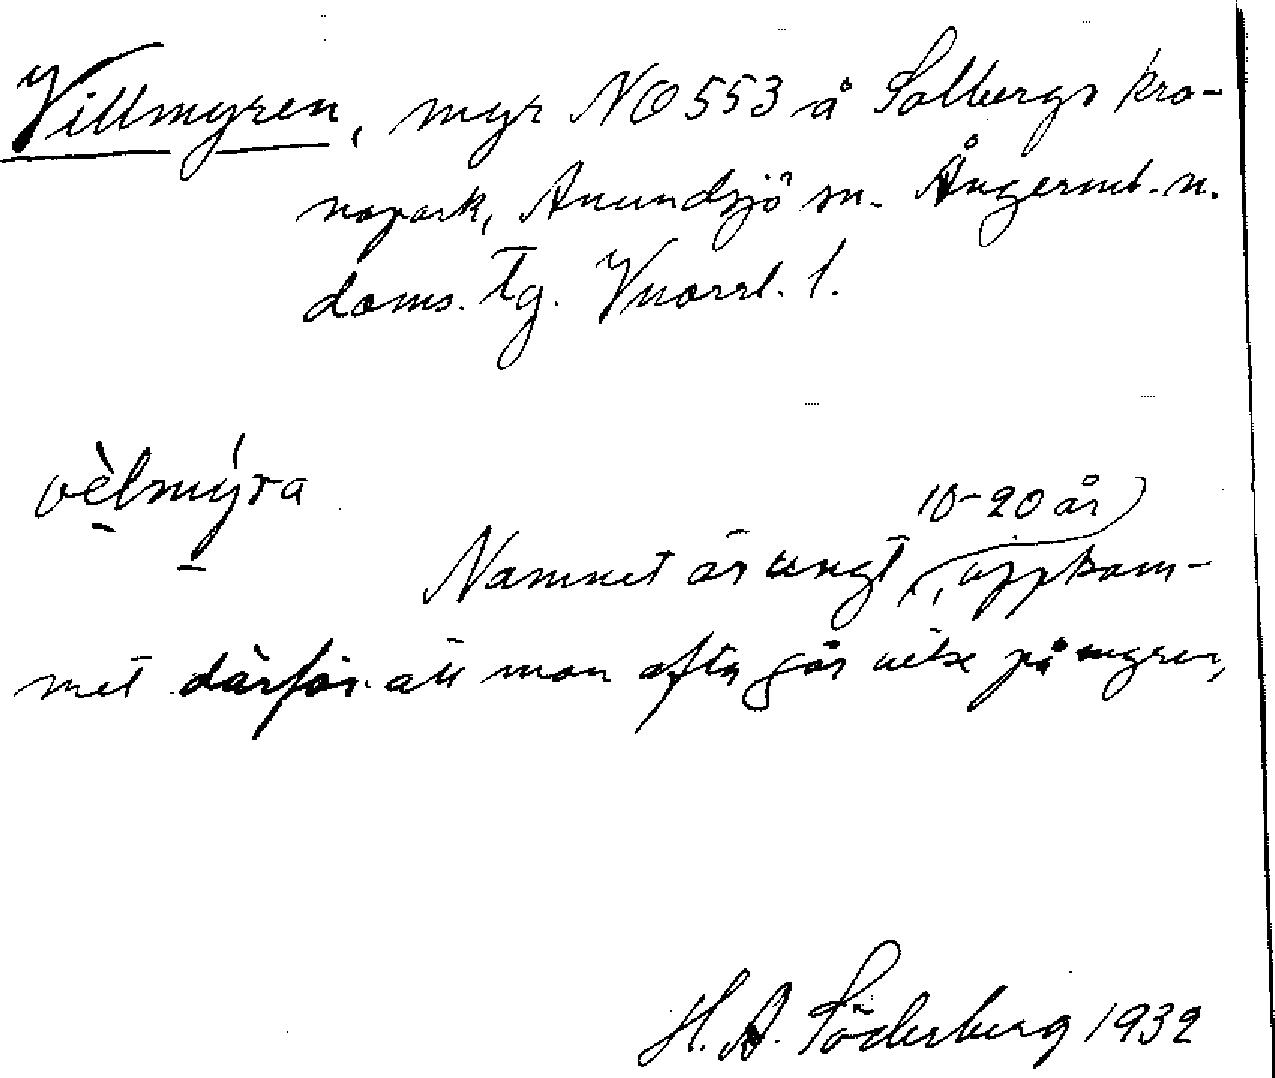 Villmyren, myr NO 553 å Solbergs kro-
nopark, Anundsjö sn. Ångerml. n.
doms. tg. Vnorrl. l.
vèlmýra
10-20 år)
Namnet är ungt (, uppkom-
met därför att man ofta går vilse på myren,
H. A. Söderberg 1932